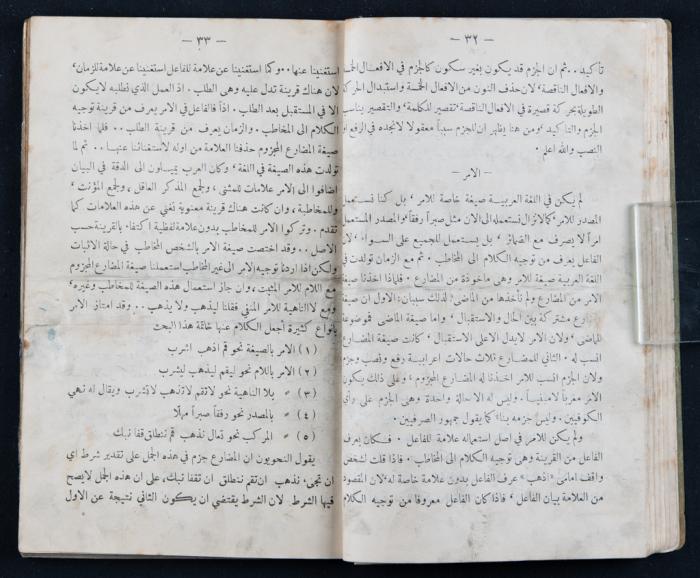 — ٣٢ —
تأكيد . . ثم ان الجزم قد يكون بغير سكون كالجزم في الافعال الخمسة
والافعال الناقصة ، لان حذف النون من الافعال الخمسة واستبدال الحركة
الطويلة بحركة قصيرة في الافعال الناقصة ، تقصير للكلمة ، والتقصير يناسب
الجزم والتأكيد ، ومن هنا يظهر ان للجزم سبباً معقولا لانجده في الرفع او
النصب والله اعلم .
— الامر —
لم يكن في اللغة العربية صيغة خاصة للامر ، بل كنا نستعمل
المصدر للامر ، كما لانزال نستعمله الى الان مثل صبراً رفقاً والمصدر المستعمل
امراً لا يصرف مع الضمائر ، بل يستعمل للجميع على السواء ، لان
الفاعل يعرف من توجيه الكلام الى المخاطب . ثم مع الزمان تولدت في
اللغة العربية صيغة للامر وهى ماخوذة من المضارع . فلماذا اخذنا صيغة
الامر من المضارع ولم نأخذها من الماضى ? لذلك سببان : الاول ان صيغة
المضارع مشتركة بين الحال والاستقبال ، واما صيغة الماضى فموضوعة
للماضى ، ولان الامر لايدل الا على الاستقبال ، كانت صيغة المضارع
انسب له . الثاني للمضارع ثلاث حالات اعرابية رفع ونصب وجزم
ولان الجزم انسب للامر اخذنا له المضارع المجزوم ، وعلى ذلك يكون
الامر معرباً لامبنياً . وليس له الا حالة واحدة وهى الجزم على رأي
الكوفيين . وليس جزمه بناء كما يقول جمهور الصرفيين .
ولم يكن للامر في اصل استعماله علامة للفاعل . فكان يعرف
الفاعل من القرينة وهى توجيه الكلام الى المخاطب . فاذا قلت لشخص
واقف امامي «اذهب» عرف الفاعل بدون علامة خاصة له ، لان المقصود
من العلامة بيان الفاعل ، فاذا كان الفاعل معروفا من توجيه الكلام
— ٣٣ —
استغنينا عنها . . وكما استغنينا عن علامة للفاعل استغنينا عن علامة للزمان ،
لان هناك قرينة تدل عليه وهى الطلب . اذ العمل الذي نطلبه لا يكون
الا في المستقبل بعد الطلب . اذاً فالفاعل في الامر يعرف من قرينة توجيه
الكلام الى المخاطب . والزمان يعرف من قرينة الطلب . . فلما اخذنا
صيغة المضارع المجزوم حذفنا العلامة من اوله لاستغنائنا عنها . . ثم لما
تولدت هذه الصيغة في اللغة ، وكان العرب يميلون الى الدقة في البيان
اضافوا الى الامر علامات للمثنى ، ولجمع المذكر العاقل ، ولجمع المؤنث ،
وللمخاطبة ، وان كانت هناك قرينة معنوية تغني عن هذه العلامات كما
تقدم . وتركوا الامر للمخاطب بدون علامة لفظية اكتفاء بالقرينة حسب
الاصل . . وقد اختصت صيغة الامر بالشخص المخاطب في حالة الاثبات
ولكن اذا اردنا توجيه الامر الى غير المخاطب استعملنا صيغة المضارع المجزوم
مع اللام للامر المثبت ، وان جاز استعمال هذه الصيغة للمخاطب وغيره ،
ومع لا الناهية للامر المنفي فقلنا ليذهب ولا يذهب . . وقد امتاز الامر
بانواع كثيرة أجعل الكلام عنها خاتمة هذا البحث
(١) الامر بالصيغة نحو قم اذهب اشرب
(٢) الامر باللام نحو ليقم ليذهب ليشرب
(٣) » بلا الناهية نحو لا تقم لا تذهب لا تشرب ويقال له نهي
(٤) » بالمصدر نحو رفقاً صبراً مهلا
(٥) » المركب نحو تعال نذهب قم ننطلق قفا نبك
يقول النحويون ان المضارع جزم في هذه الجمل على تقدير شرط اي
ان تجىء نذهب ان تقم ننطلق ان تقفا نبك ، على ان هذه الجمل لا يصح
فيها الشرط لان الشرط يقتضي ان يكون الثاني نتيجة عن الاول